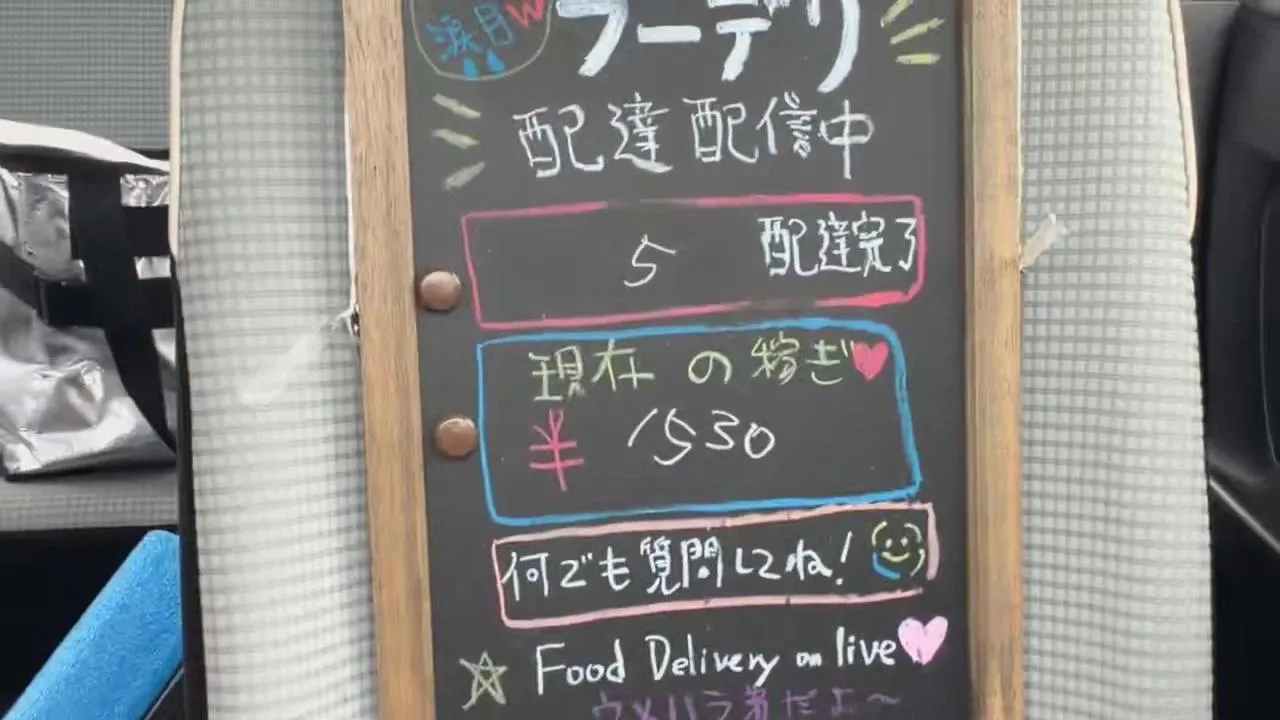 涙月W
フーデリ
配達配信中
5 配達完了
現在の稼ぎ
¥ 1530
何でも質問してね!
Food Delivery on live
ウメハラ者だよ~